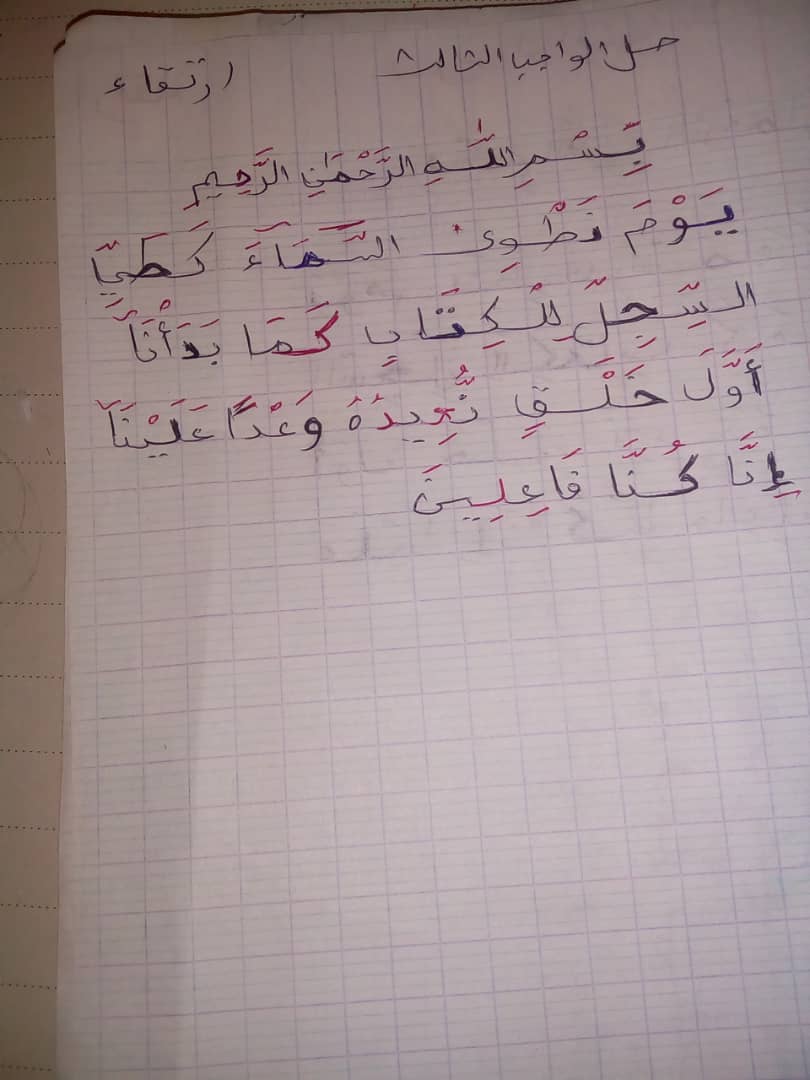 حل الواجب الثالث ارتقاء
بِسْمِ اللَّهِ الرَّحْمَٰنِ الرَّحِيمِ
يَوْمَ نَطْوِى السَّمَآءَ كَطَيِّ
السِّجِلِّ لِلْكِتَابِ كَمَا بَدَأْنَآ
أَوَّلَ خَلْقٍ نُّعِيدُهُ وَعْدًا عَلَيْنَآ
إِنَّا كُنَّا فَاعِلِينَ